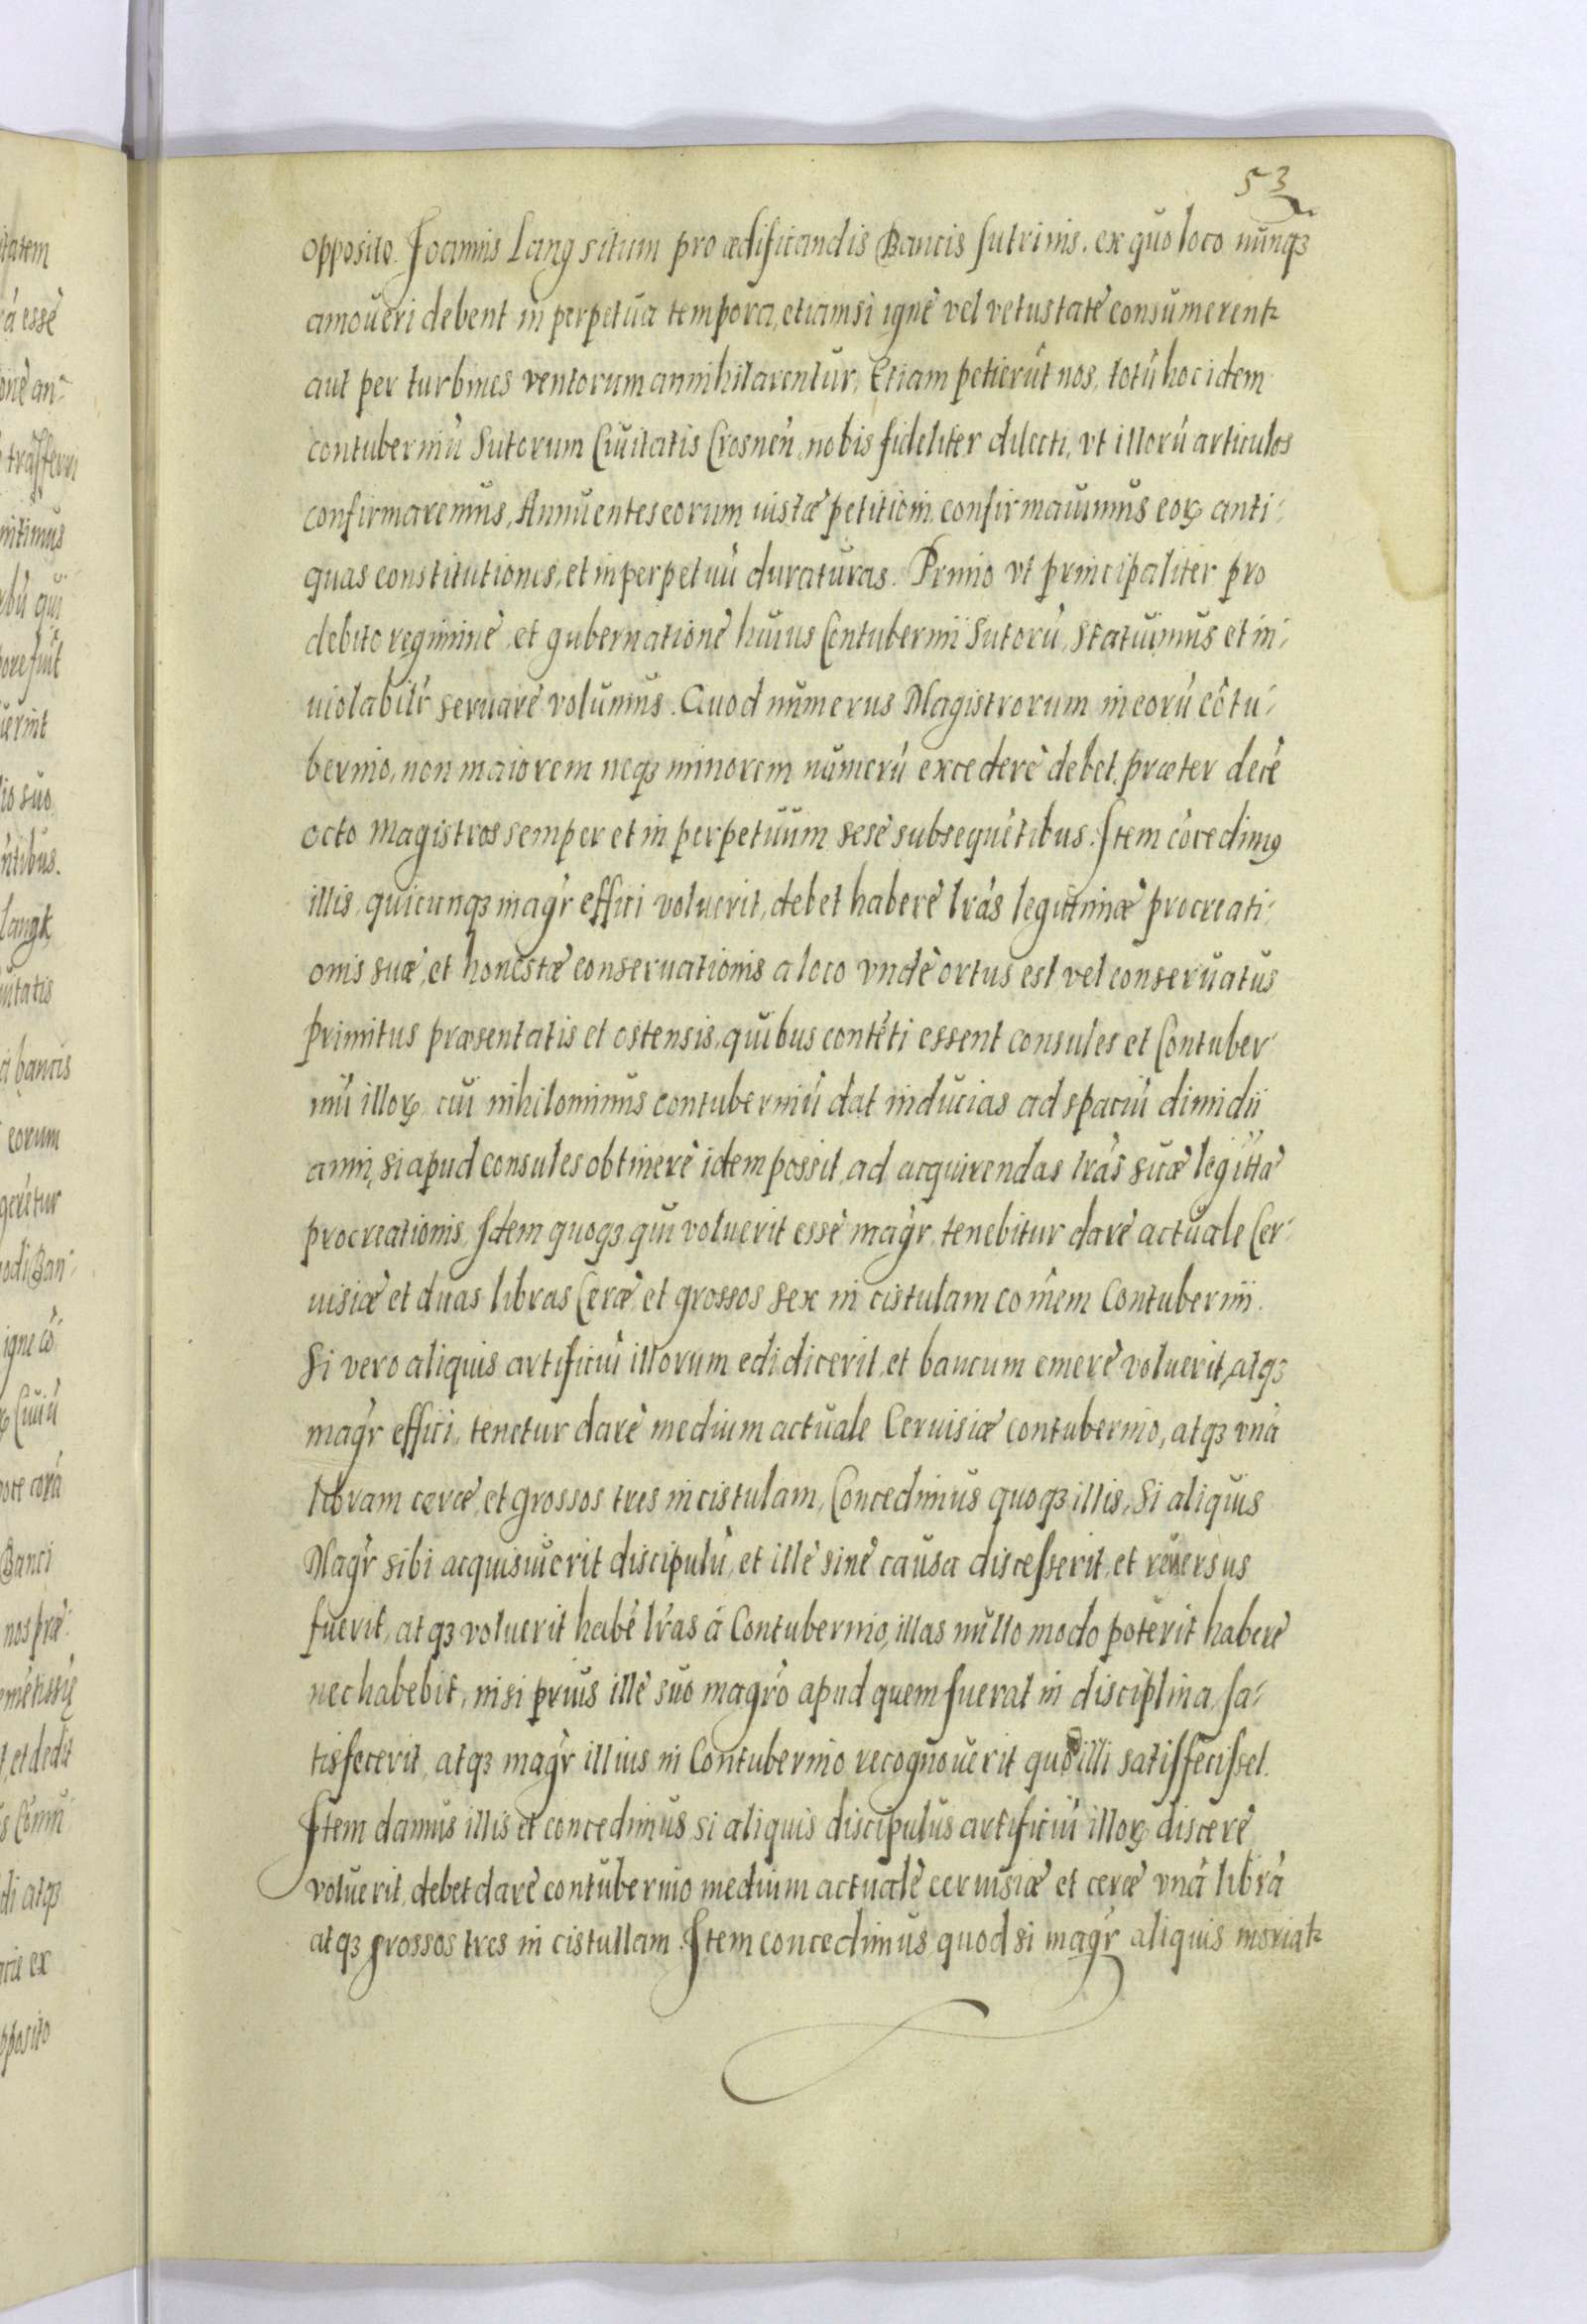 53
opposito Joannis Lang situm pro ædificandis Bancis sutrinis. ex quo loco nunqꝫ
amoueri debent in perpetua tempora, etiamsi igne vel vetustate consumerentꝛ
aut per turbines ventorum annihilarentur, Etiam petierūt nos, totū hoc idem
contuberniū Sutorum Ciuitatis Crosneñ, nobis fideliter dilecti, vt illorū articulos
confirmaremus, Annuentes eorum iustæ petitioni confirmauimus eoꝝ anti-
quas constitutiones, et in perpetuū duraturas. Primo vt principaliter pro
debito regimine, et gubernatione huius Contubernii Sutorū, Statuimus et in-
uiolabilr̃ seruare volumus. Quod numerus Magistrorum in eorū cōtu-
bernio, non maiorem neqꝫ minorem numerū excedere debet, præter decē
octo Magistros semper et in perpetuum sese subsequētibus. Item cōcedimꝰ
illis, quicunqꝫ magr̃ effici voluerit, debet habere lr̃as legittimæ procreati-
onis suæ, et honestæ conseruationis a loco vnde ortus est vel conseruatus
primitus præsentatis et ostensis, quibus contēti essent consules et Contuber-
niū illoꝝ, cui nihilominus contuberniū dat inducias ad spaciū dimidii
anni, si apud consules obtinere idem possit, ad acquirendas lr̃as suæ legittæ̃
procreationis, Idem quoqꝫ, qui voluerit esse magr̃, tenebitur dare actuale Cer-
uisiæ et duas libras Ceræ, et grossos sex in cistulam cōm̃em Contubernii.
Si vero aliquis artificiū illorum edidicerit, et bancum emere voluerit, atqꝫ
magr̃ effici, tenetur dare medium actuale Ceruisiæ contubernio, atqꝫ vnā
libram ceræ, et grossos tres in cistulam, Concedimus quoqꝫ illis, Si aliquis
Magr̃ sibi acquisiuerit discipulū, et ille sine causa discesserit, et reuersus
fuerit, atqꝫ voluerit habē lr̃as á Contubernio, illas nullo modo poterit habere
nec habebit, nisi prius ille suo magr̃o apud quem fuerat in disciplina, sa-
tisfecerit, atqꝫ magr̃ illius in Contubernio recognouerit quod illi satisfecisset.
Item damus illis et concedimus, si aliquis discipulus artificiū illoꝝ discere
voluerit, debet dare contubernio medium actuale ceruisiæ et ceræ vnā librā
atqꝫ grossos tres in cistullam. Item concedimus quod si magr̃ aliquis moriatꝛ